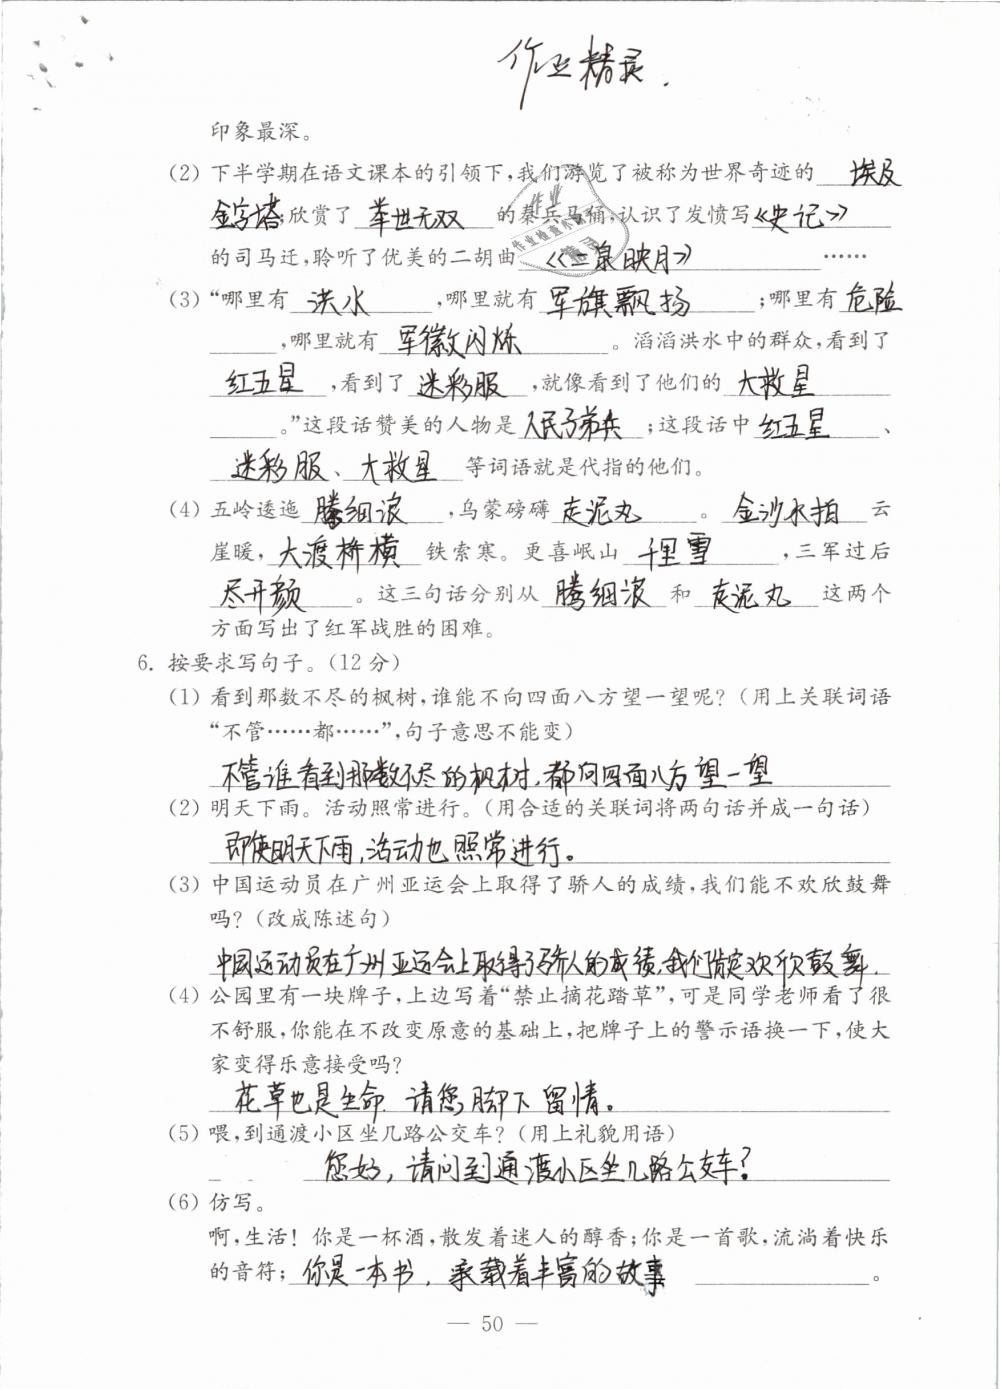 作业精灵.
印象最深。
(2) 下半学期在语文课本的引领下,我们游览了被称为世界奇迹的 埃及
金字塔;欣赏了 举世无双 的秦兵马俑,认识了发愤写《史记》
的司马迁,聆听了优美的二胡曲 《二泉映月》 ……
(3) “哪里有 洪水 ,哪里就有 军旗飘扬 ;哪里有 危险
,哪里就有 军徽闪烁 。滔滔洪水中的群众,看到了
红五星 ,看到了 迷彩服 ,就像看到了他们的 大救星
。”这段话赞美的人物是 人民子弟兵 ;这段话中 红五星 、
迷彩服、大救星 等词语就是代指的他们。
(4) 五岭逶迤 腾细浪 ,乌蒙磅礴 走泥丸 。 金沙水拍 云
崖暖, 大渡桥横 铁索寒。更喜岷山 千里雪 ,三军过后
尽开颜 。这三句话分别从 腾细浪 和 走泥丸 这两个
方面写出了红军战胜的困难。
6. 按要求写句子。(12 分)
(1) 看到那数不尽的枫树,谁能不向四面八方望一望呢?(用上关联词语
“不管……都……”,句子意思不能变)
不管谁看到那数不尽的枫树,都向四面八方望一望
(2) 明天下雨。活动照常进行。(用合适的关联词将两句话并成一句话)
即使明天下雨,活动也照常进行。
(3) 中国运动员在广州亚运会上取得了骄人的成绩,我们能不欢欣鼓舞
吗?(改成陈述句)
中国运动员在广州亚运会上取得了骄人的成绩,我们肯定欢欣鼓舞.
(4) 公园里有一块牌子,上边写着“禁止摘花踏草”,可是同学老师看了很
不舒服,你能在不改变原意的基础上,把牌子上的警示语换一下,使大
家变得乐意接受吗?
花草也是生命.请您脚下留情。
(5) 喂,到通渡小区坐几路公交车?(用上礼貌用语)
您好,请问到通渡小区坐几路公交车?
(6) 仿写。
啊,生活!你是一杯酒,散发着迷人的醇香;你是一首歌,流淌着快乐
的音符; 你是一本书,承载着丰富的故事 。
— 50 —